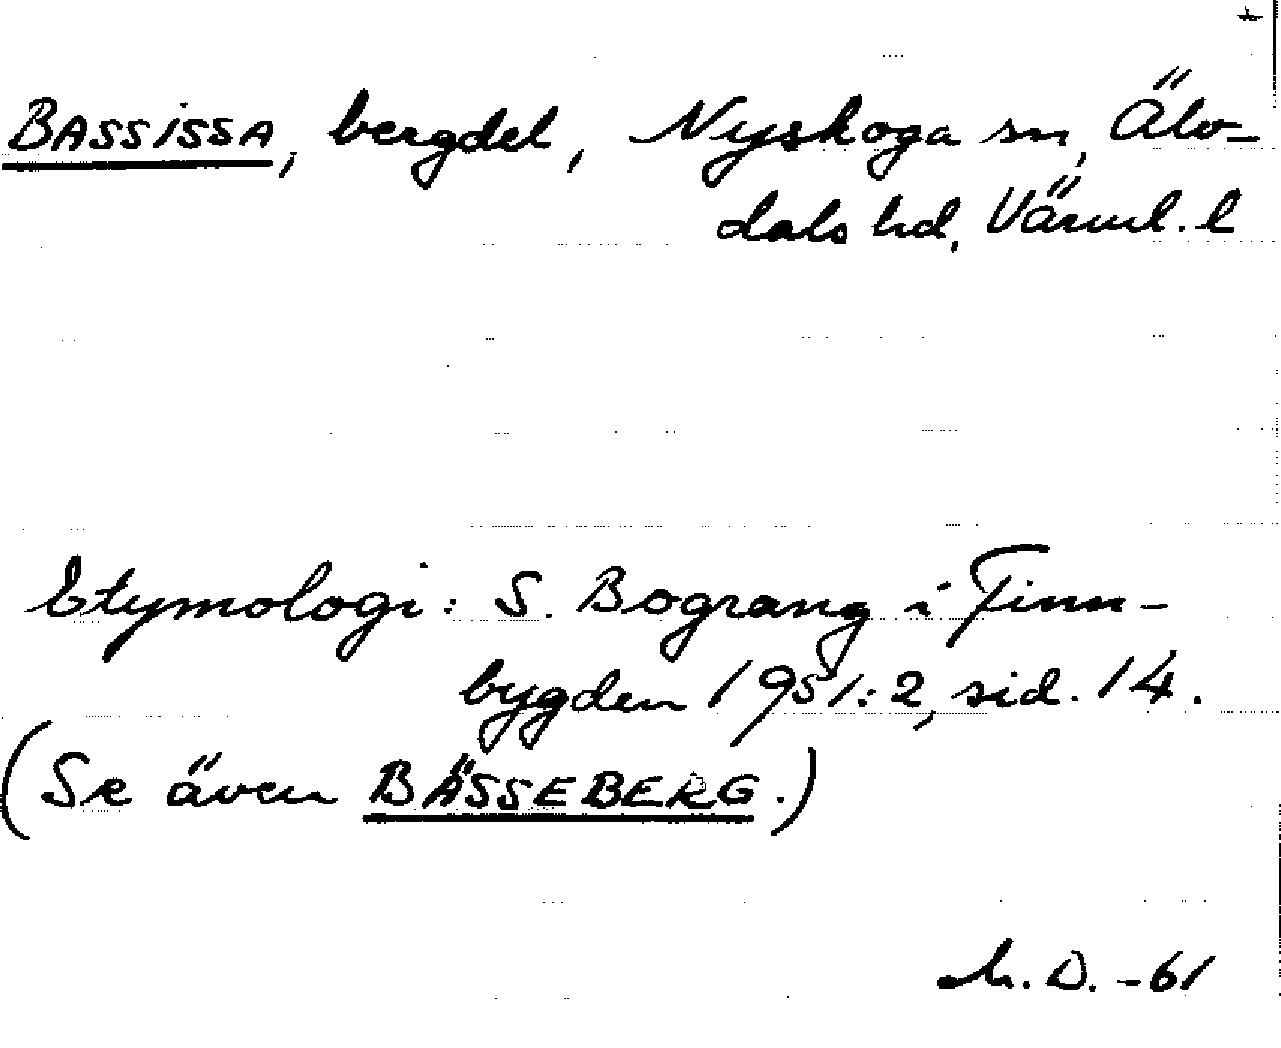 +
BASSISSA, bergdel, Nyskoga sn, Älv-
dals hd, Värml. l
Etymologi: S. Bograng i Finn-
bygden 1951:2, sid. 14.
(Se även BÄSSEBERG.)
M. D. -61